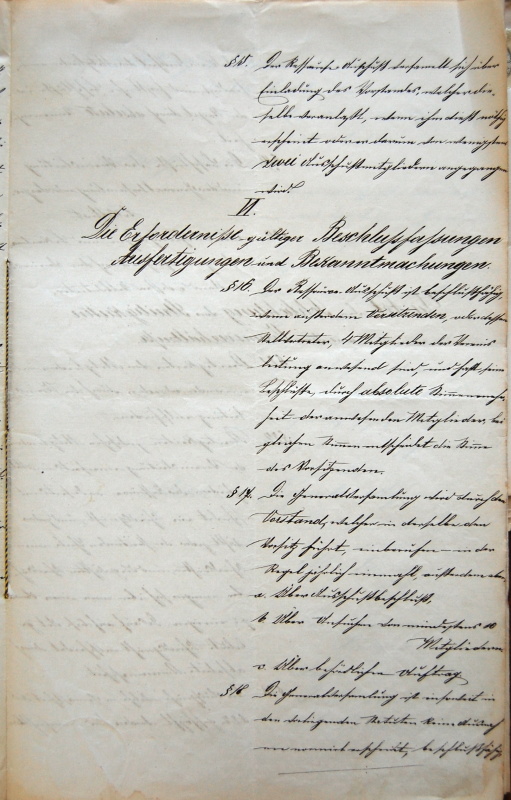 § 15. Der Ressource Ausschuß versammelt sich über
Einladung des Vorstandes, welcher der-
selbe veranlaßt, wenn ihm dieß nöthig
erscheint oder er darum von wenigstens
zwei Ausschußmitgliedern angegangen
wird.
VI.
Die Erfordernisse gültiger Beschlußfassungen
Ausfertigungen und Bekanntmachungen.
§ 16. Der Ressource Ausschuß ist beschlußfähig,
wenn außer dem Vorstande, oder dessen
Stellvertreter, 4 Mitglieder der Vereins
leitung anwesend sind, und faßt seine
Beschlüsse, durch absolute Stimmenmehr-
heit der anwesenden Mitglieder, bei
gleichen Stimmen entscheidet die Stimme
des Vorsitzenden.
§ 17. Die Generalversammlung wird durch den
Vorstand, welcher in derselben den
Vorsitz führt, einberufen – in der
Regel jährlich einmahl, außerdem aber
a. Über Ausschußbeschluß.
b. Über Ansuchen von mindestens 10
Mitgliedern
c. Über behördlichen Auftrag
§ 18. Die Generalversammlung ist insofern in
den Statuten keine
erscheint, beschlußfähig